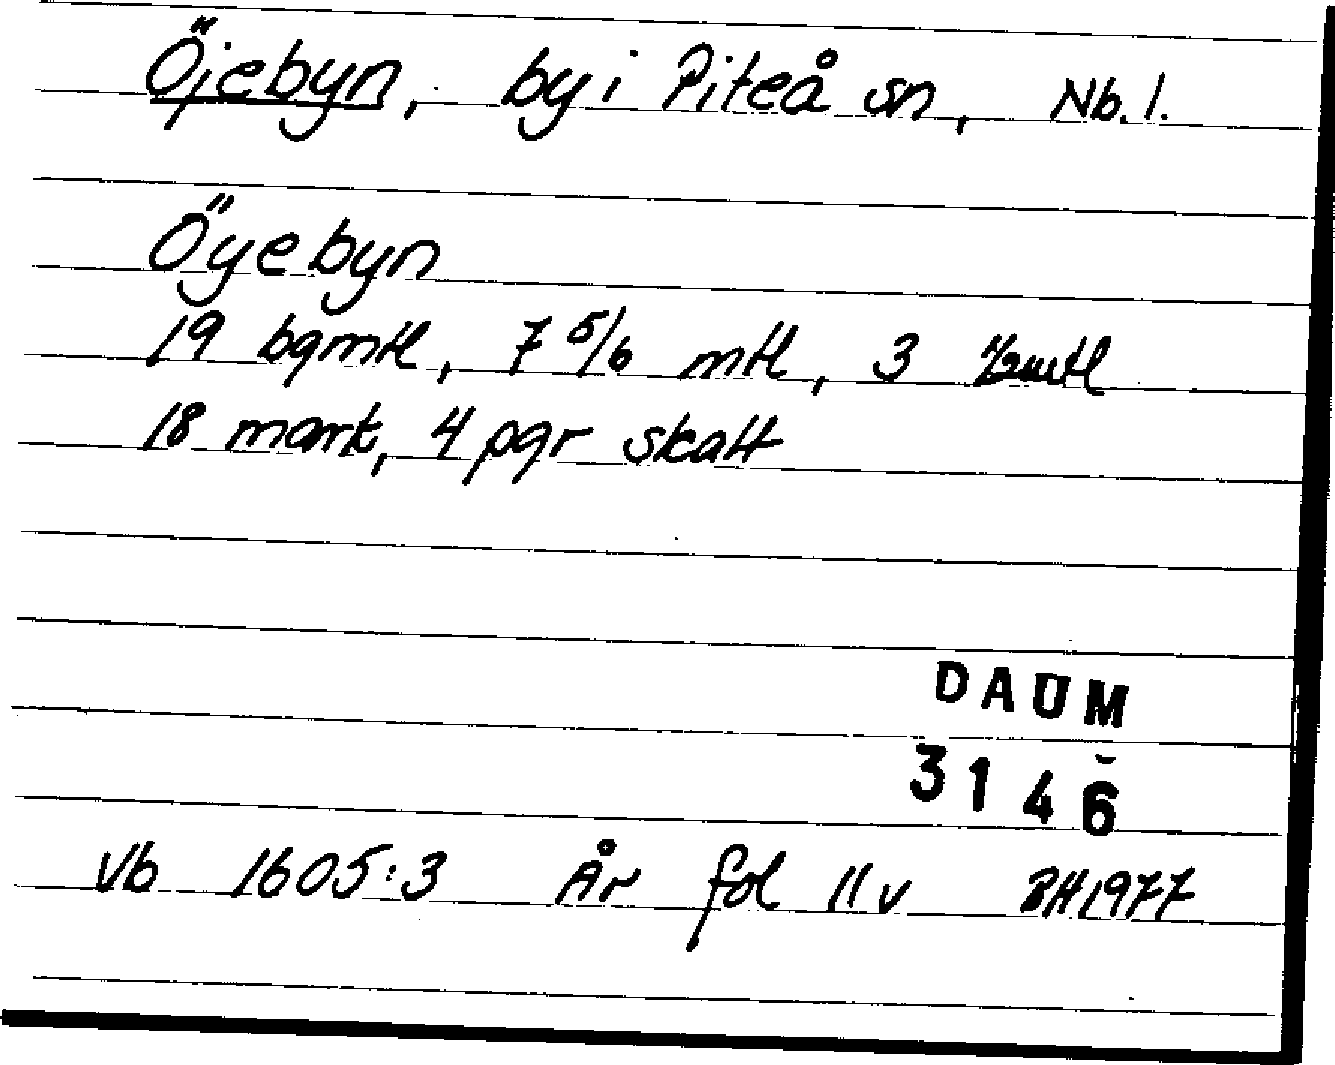 Öjebyn, by i Piteå sn, Nb. l.
Öyebyn
19 bgmtl, 7 5/6 mtl, 3 1/2mtl
18 mark, 4 pgr skatt
DAUM
3146
Vb 1605:3 År fol 11v BH1977